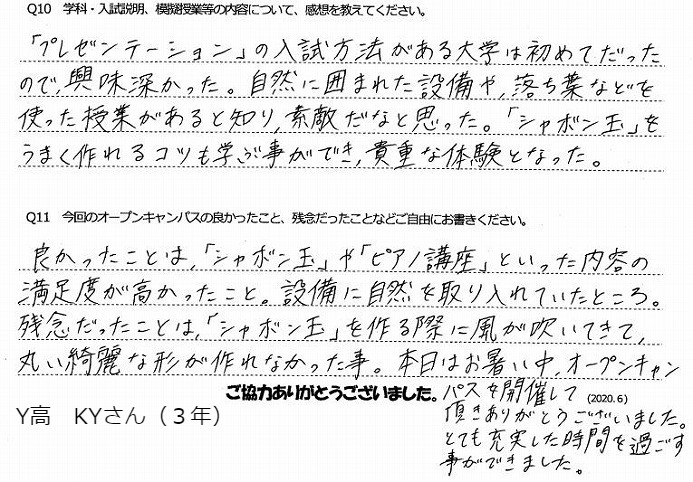 Q10 学科・入試説明、模擬授業等の内容について、感想を教えてください。
「プレゼンテーション」の入試方法がある大学は初めてだった
ので、興味深かった。自然に囲まれた設備や、落ち葉などを
使った授業があると知り、素敵だなと思った。「シャボン玉」を
うまく作れるコツも学ぶ事ができ、貴重な体験となった。
Q11 今回のオープンキャンパスの良かったこと、残念だったことなどご自由にお書きください。
良かったことは、「シャボン玉」や「ピアノ講座」といった内容の
満足度が高かったこと。設備に自然を取り入れていたところ。
残念だったことは、「シャボン玉」を作る際に風が吹いてきて、
丸い綺麗な形が作れなかった事。本日はお暑い中、オープンキャン
パスを開催して
頂きありがとうございました。
とても充実した時間を過ごす
事ができました。
ご協力ありがとうございました。
(2020.6)
Y高 KYさん(3年)